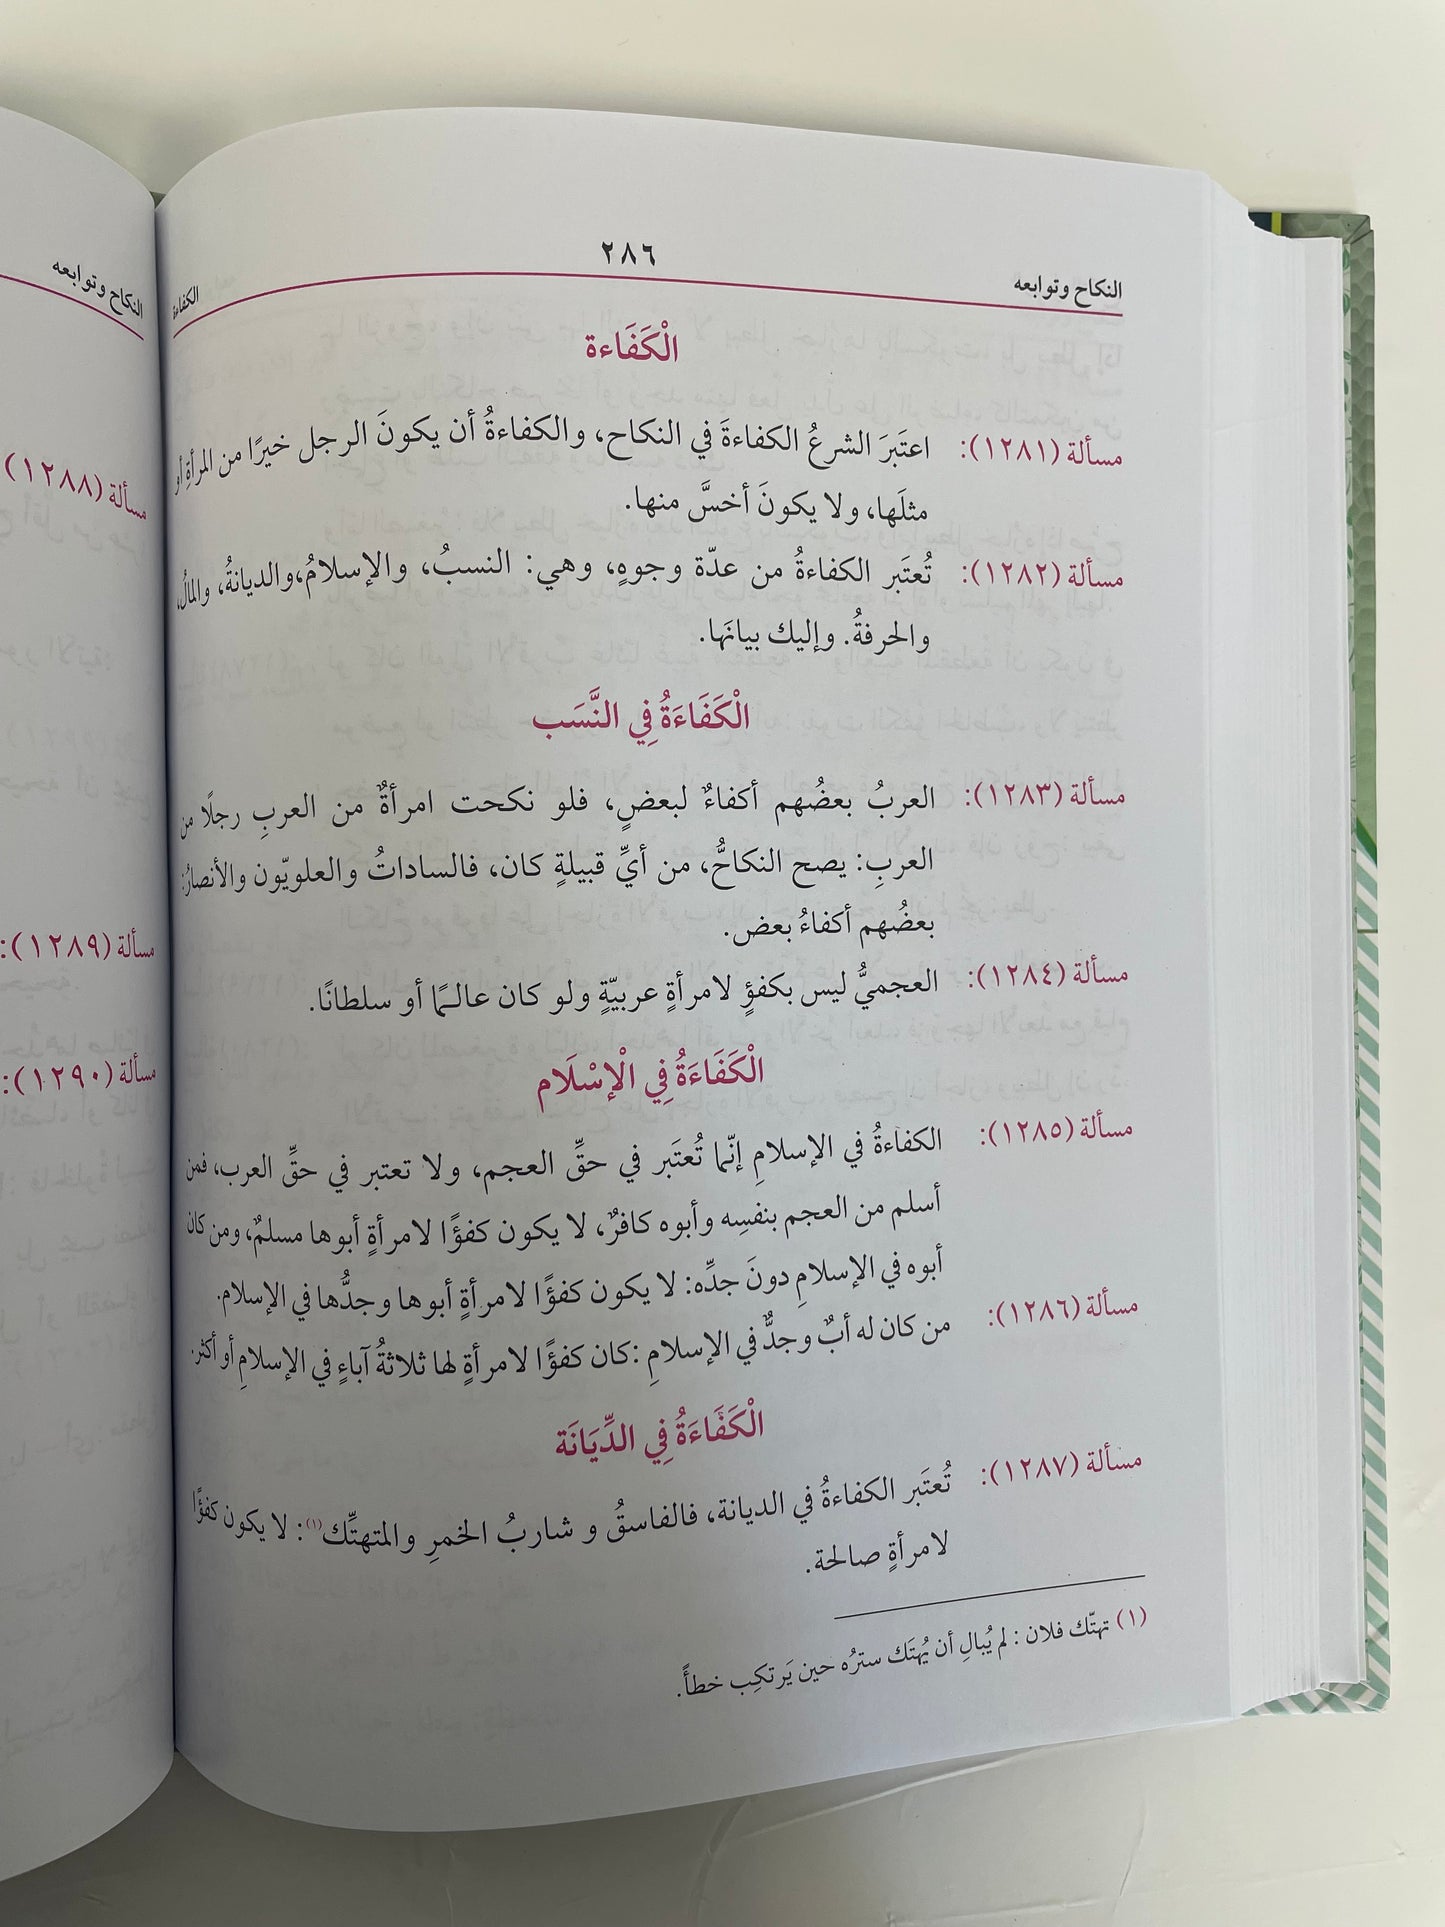 ٢٨٦
النكاح وتوابعه
الكفاءة
الْكَفَاءة
مسألة (١٢٨١): اعتَبرَ الشرعُ الكفاءةَ في النكاح، والكفاءةُ أن يكونَ الرجل خيرًا من المرأةِ أو
مثلَها، ولا يكونَ أخسَّ منها.
مسألة (١٢٨٢): تُعتَبر الكفاءةُ من عدّة وجوهٍ، وهي: النسبُ، والإسلامُ،والديانةُ، والمالُ،
والحرفةُ. وإليك بيانَها.
الْكَفَاءَةُ فِي النَّسَب
مسألة (١٢٨٣): العربُ بعضُهم أكفاءٌ لبعضٍ، فلو نكحت امرأةٌ من العربِ رجلًا من
العربِ: يصح النكاحُ، من أيِّ قبيلةٍ كان، فالساداتُ والعلويّون والأنصارُ:
بعضُهم أكفاءُ بعض.
مسألة (١٢٨٤): العجميُّ ليس بكفؤٍ لامرأةٍ عربيّةٍ ولو كان عالـمًا أو سلطانًا.
الْكَفَاءَةُ فِي الْإسْلَام
مسألة (١٢٨٥): الكفاءةُ في الإسلامِ إنّما تُعتَبر في حقِّ العجم، ولا تعتبر في حقِّ العرب، فمن
أسلم من العجم بنفسِه وأبوه كافرٌ، لا يكون كفؤًا لامرأةٍ أبوها مسلمٌ، ومن كان
أبوه في الإسلامِ دونَ جدِّه: لا يكون كفؤًا لامرأةٍ أبوها وجدُّها في الإسلام.
مسألة (١٢٨٦): من كان له أبٌ وجدٌّ في الإسلامِ :كان كفؤًا لامرأةٍ لها ثلاثةُ آباءٍ في الإسلامِ أو أكثر.
الْكَفَاءَةُ فِي الدِّيَانَة
مسألة (١٢٨٧): تُعتَبر الكفاءةُ في الديانة، فالفاسقُ و شاربُ الخمرِ والمتهتِّك(١): لا يكون كفؤًا
لامرأةٍ صالحة.
(١) تهتّك فلان : لم يُبالِ أن يُهتَك سترُه حين يَرتكِب خطأً.
النكاح وتوابعه
مسألة (١٢٨٨)
مسألة (١٢٨٩):
مسألة (١٢٩٠):